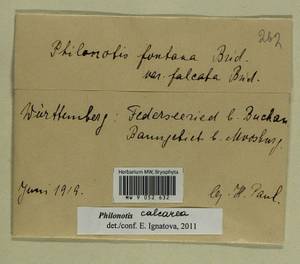 262
Philonotis fontana Brid.
var. falcata Brid.
Württemberg: Federseeried b. Buchau
Banngebiet b. Moosburg.
Juni 1919. lg. H. Paul.
Herbarium MW, Bryophyta
MW 9 052 632
Philonotis calcarea
det./conf. E. Ignatova, 2011